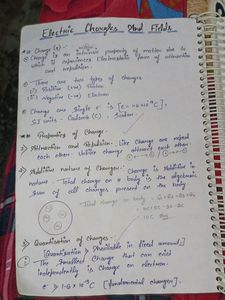 Electric Charges And Fields
* Charge (q) :-
① Charge is an intrinsic property of matter due to
which it experiences Electrostatic force of attraction
and repulsion.
② There are two types of charges.
i) Positive (+ve) Proton
ii) Negative (-ve) Electron
SI unit - Coulomb (C)
* Properties of Charge:-
1) Attraction and Repulsion:- Like Charge are repel
each other. Unlike charge attracts each other
2) Additive nature of Charge:- Charge is Additive in
nature Total charge on a body is the algebraic
sum of all charges present on the body
Total charge on body
3) Quantization of Charge:-
[Quantization → Available in fixed amount]
① The Smallest Charge that can exist
independently is Charge on electron.
[fundamental charge]